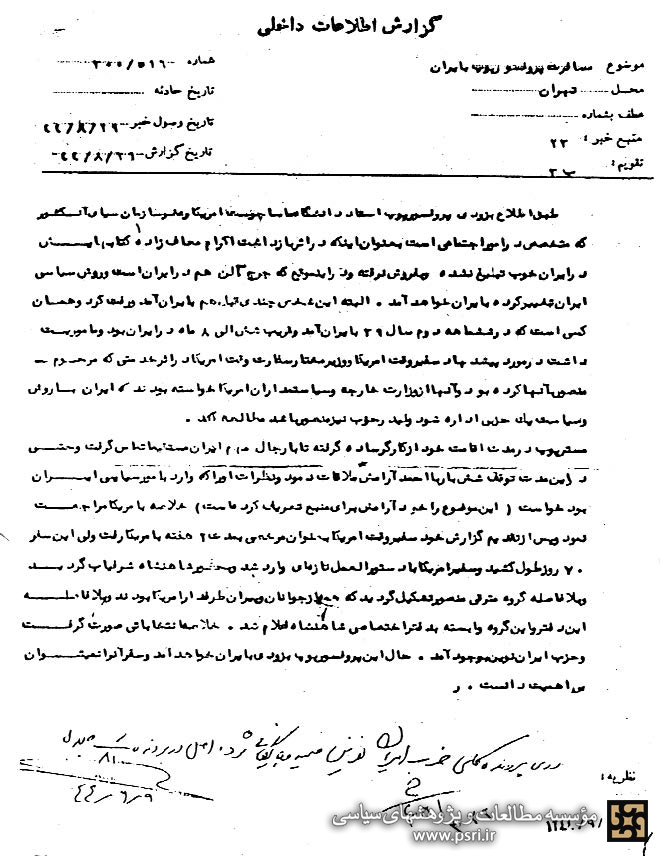 گزارش اطلاعات داخلی
موضوع مسافرت پروفسور پوپ بایران
شماره ۳۰۰/۵۱۶
محل تهران
تاریخ حادثه
عطف بشماره
تاریخ وصول خبر
منبع خبر: ۲۳
تاریخ گزارش
تقویم:
طبق اطلاع بزودی پروفسور پوپ استاد دانشگاه امریکا و عضو سازمان سیا آنکشور
که متخصص در امور اجتماعی است بعنوان اینکه در اثر بازداشت اکرام محافزاده کتابهایش
در ایران خوب تبلیغ نشده و بفروش نرفته و در اینموقع که جرج آلن هم در ایران است وروش سیاسی
ایران تغییر کرده بایران خواهد آمد . البته این شخص چندی قبل هم بایران آمد ورفت کرد وهمان
کسی است که در ششماهه دوم سال ۳۹ بایران آمد وقریب شش الی ۸ ماه در ایران بود وماموریت
داشت در مورد پیشنهاد سفیر وقت امریکا ووزیر مختار سفارت وقت امریکا در اثر خدمتی که مرحوم
منصور بآنها کرده بود وآنها از وزارت خارجه وسیاستمداران امریکا خواسته بودند که ایران با روش
وسیاست یک حزبی اداره شود ولیدر حزب نیز منصور باشد مطالعه کند .
مستر پوپ در مدت اقامت خود از کارگر ساده گرفته تا با رجال مهم ایران مستقیما تماس گرفت وحتی
در این مدت توقف شش بار با احمد آرامش ملاقات نمود ونظرات او را که وارد بامور سیاسی ایران
بود خواست ( این موضوع را خود آرامش برای منبع تعریف کرده است ) خلاصه بامریکا مراجعت
نمود وپس از تقدیم گزارش خود سفیر وقت امریکا بعنوان مرخصی بمدت ۲ هفته بامریکا رفت ولی این سفر
۷۰ روز طول کشید وسفیر امریکا با دستورالعمل تازهای وارد شد وبحضور شاهنشاه شرفیاب گردید
وبلافاصله گروه مترقی منصور تشکیل گردید که از جوانان وپیران طرفدار امریکا بودند وبلافاصله
این دفتر واین گروه وابسته بدفتر اختصاصی شاهنشاه اعلام شد . خلاصه انتخاباتی صورت گرفت
وحزب ایران نوین بوجود آمد . حال این پروفسور پوپ بزودی بایران خواهد آمد وسفر آنرا نمیتوان
بی اهمیت دانست .
نظریه:
۴۴/۶/۹
مؤسسه مطالعات و پژوهشهای سیاسی
www.psri.ir